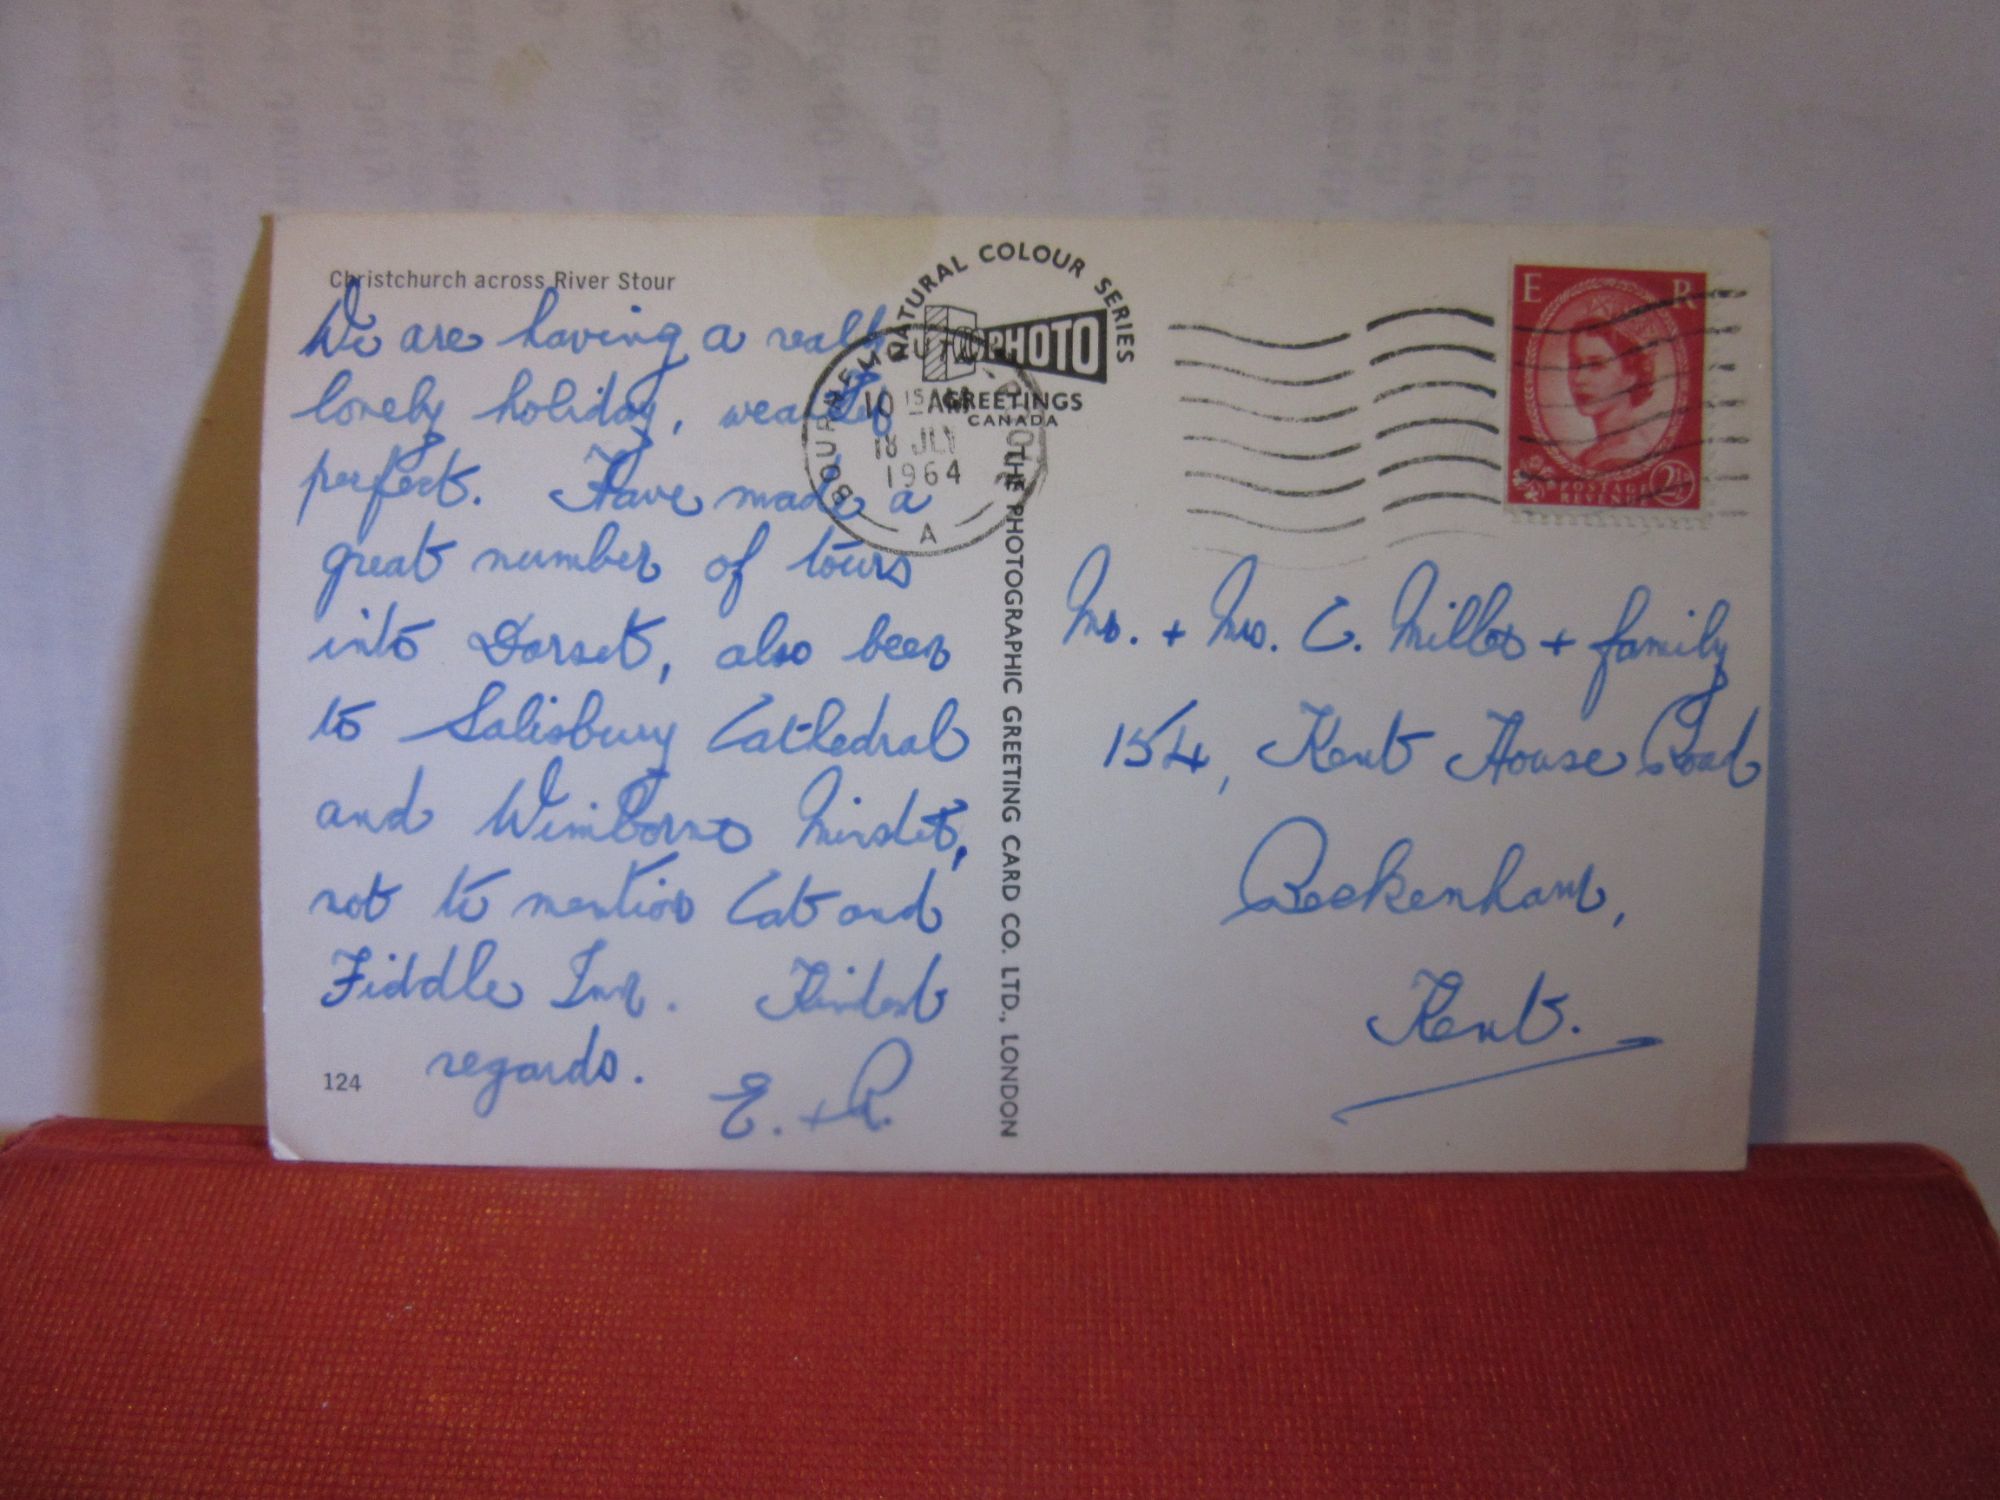 Christchurch across River Stour
We are having a really
lovely holiday, weather
perfect. Have made a
great number of tours
into Dorset, also been
to Salisbury Cathedral
and Wimborne Minster,
not to mention Cat and
Fiddle Inn. Kindest
regards.
E. + R.
124
NATURAL COLOUR SERIES
PHOTO
GREETINGS
CANADA
10 15 AM
18 JLY
1964
A
THE PHOTOGRAPHIC GREETING CARD CO. LTD., LONDON
E R
POSTAGE
REVENUE
2½
Mr. + Mrs. C. Miller + family
154, Kent House Road
Beckenham,
Kent.